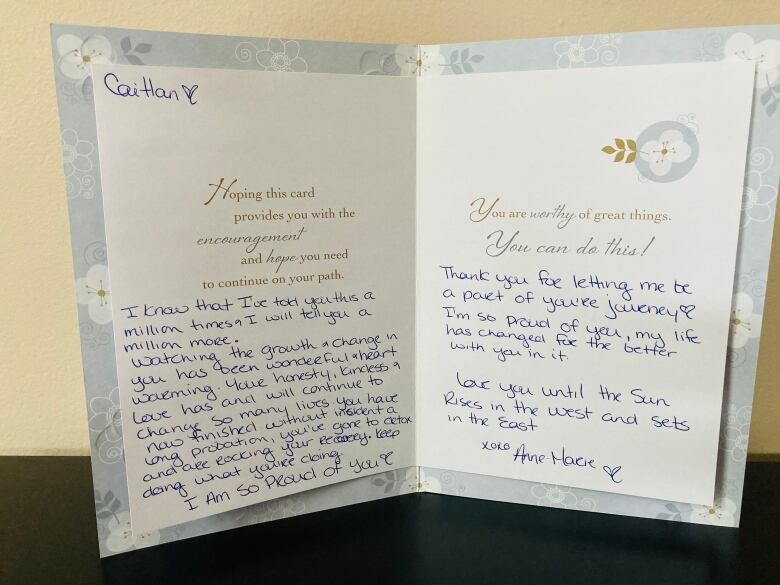 Caitlan
Hoping this card
provides you with the
encouragement
and hope you need
to continue on your path.
I know that I've told you this a
million times & I will tell you a
million more.
Watching the growth & change in
you has been wonderful & heart
warming. Youre honesty, kindess &
Love has and will continue to
change so many lives. You have
now finished without insident a
long probation, you've gone to detox
and are rocking your recovery. keep
doing what you're doing
I Am So Proud of You
You are worthy of great things.
You can do this!
Thank you for letting me be
a part of you're journey
I'm so Proud of you, my life
has changed for the better
with you in it.
Love you until the Sun
Rises in the west and sets
in the East
xoxo Anne-Marie